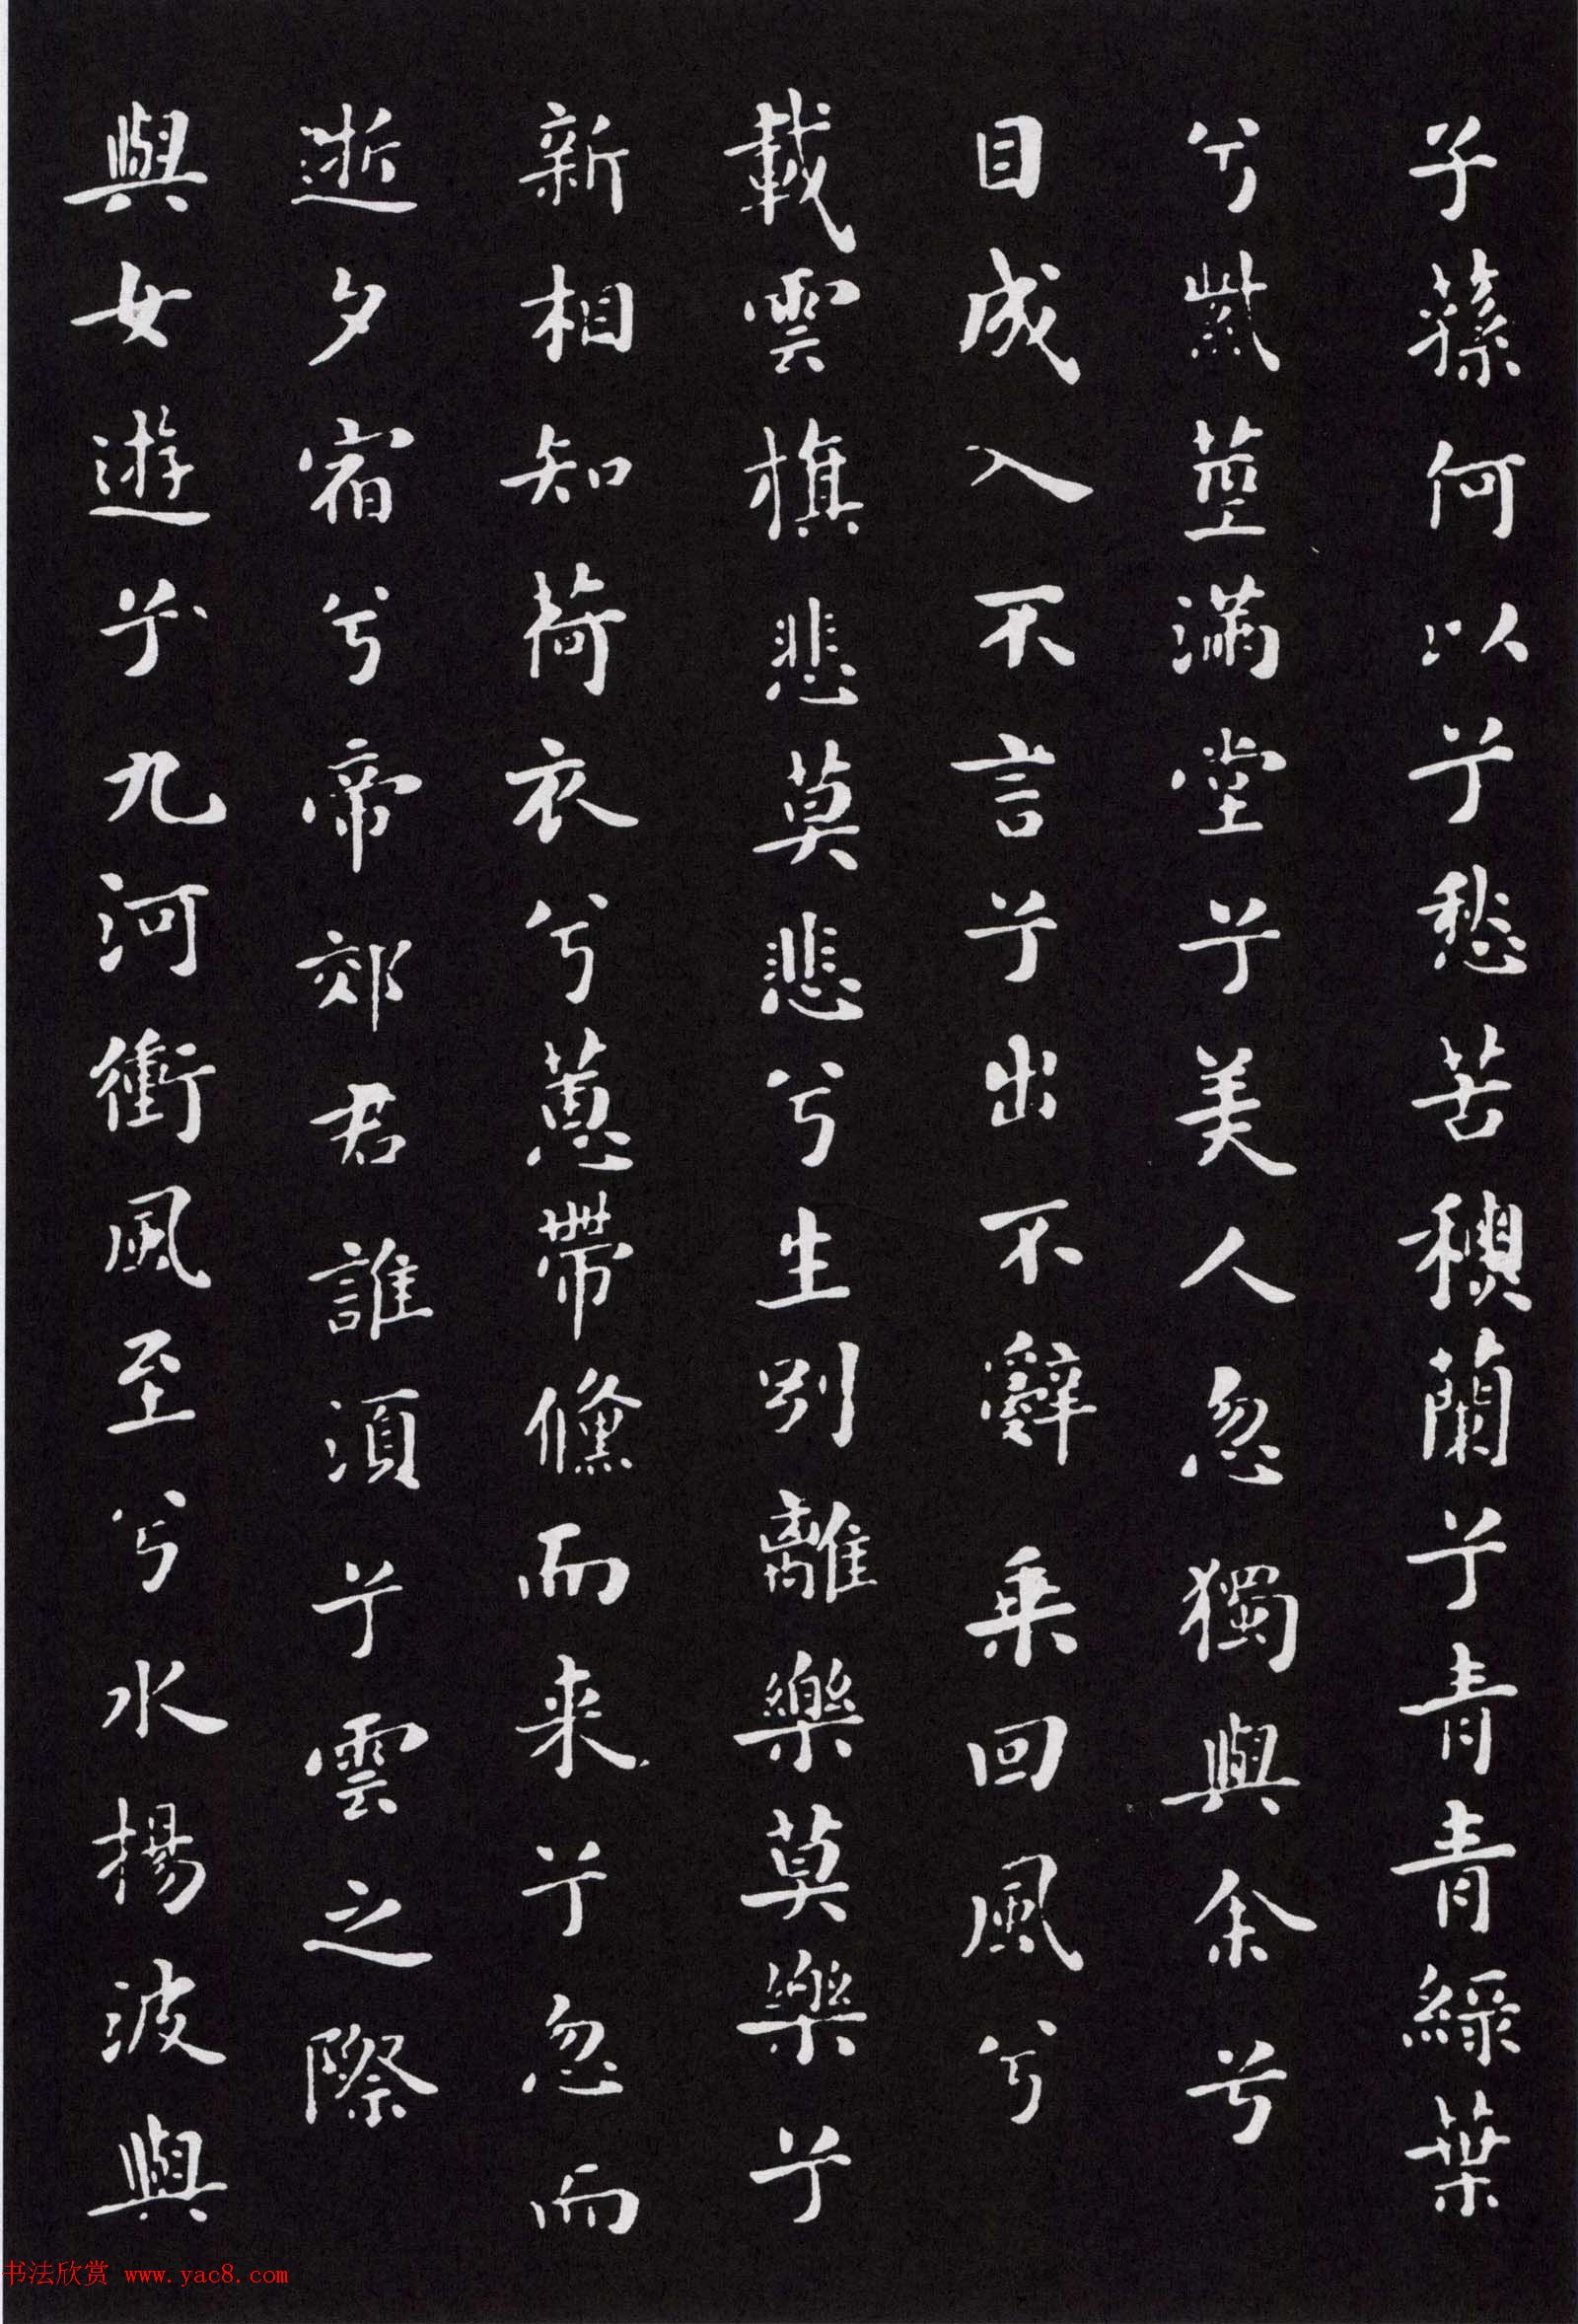 子蓀何以兮愁苦穠蘭兮青青綠葉
兮紫莖滿堂兮美人忽獨與余兮
目成入不言兮出不辭乘回風兮
載雲旗悲莫悲兮生別離樂莫樂兮
新相知荷衣兮蕙帶儵而来兮忽而
逝夕宿兮帝郊君誰須兮雲之際
與女遊兮九河衝風至兮水揚波與
书法欣赏 www.yac8.com